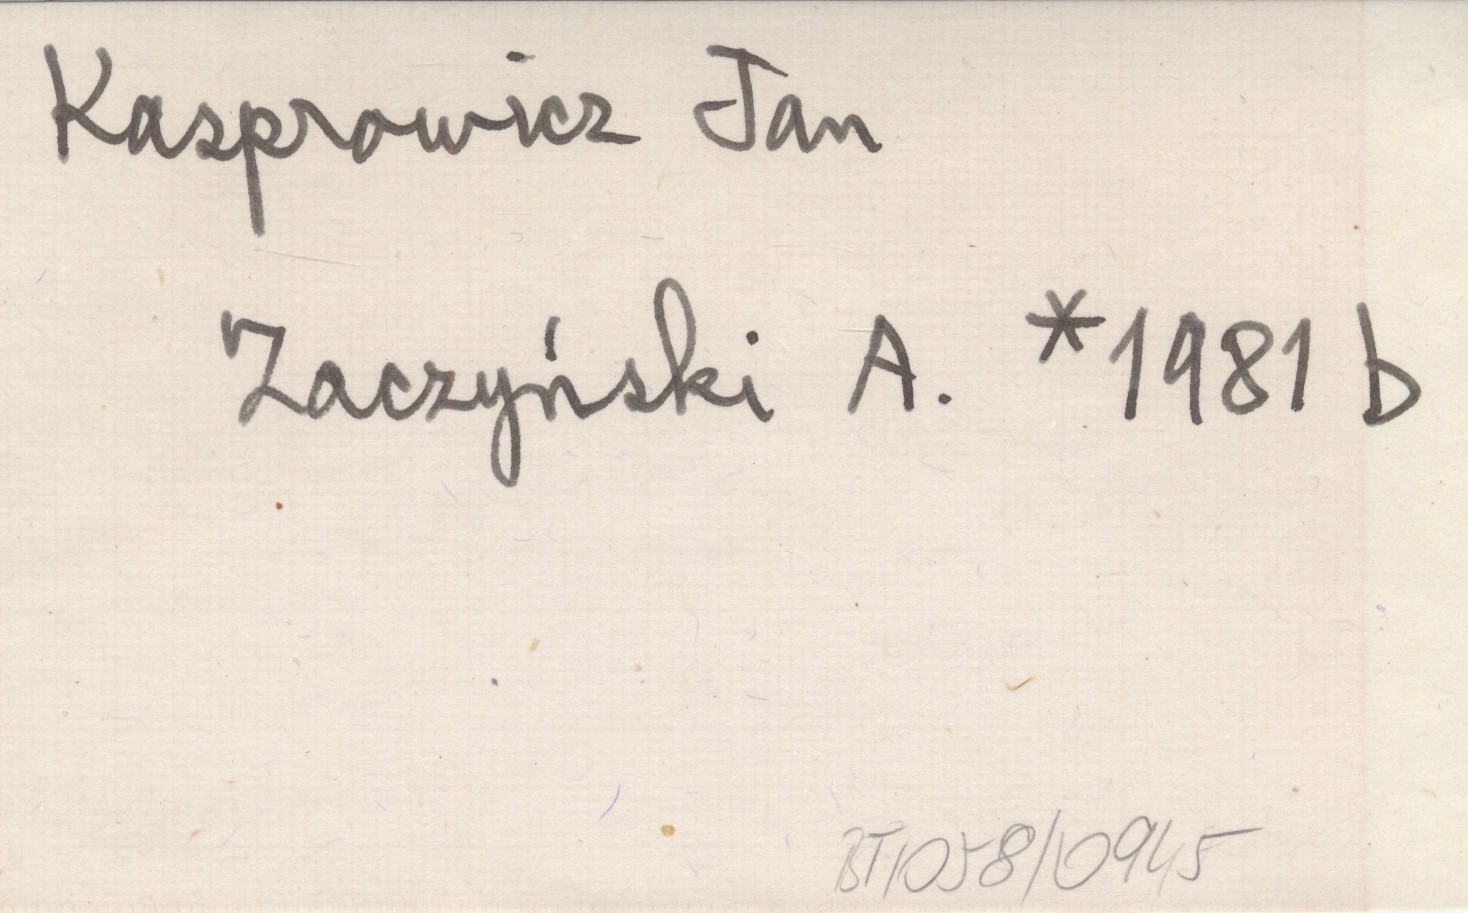 Kasprowicz Jan
Zaczyński A. *1981 b
BT/1058/0945